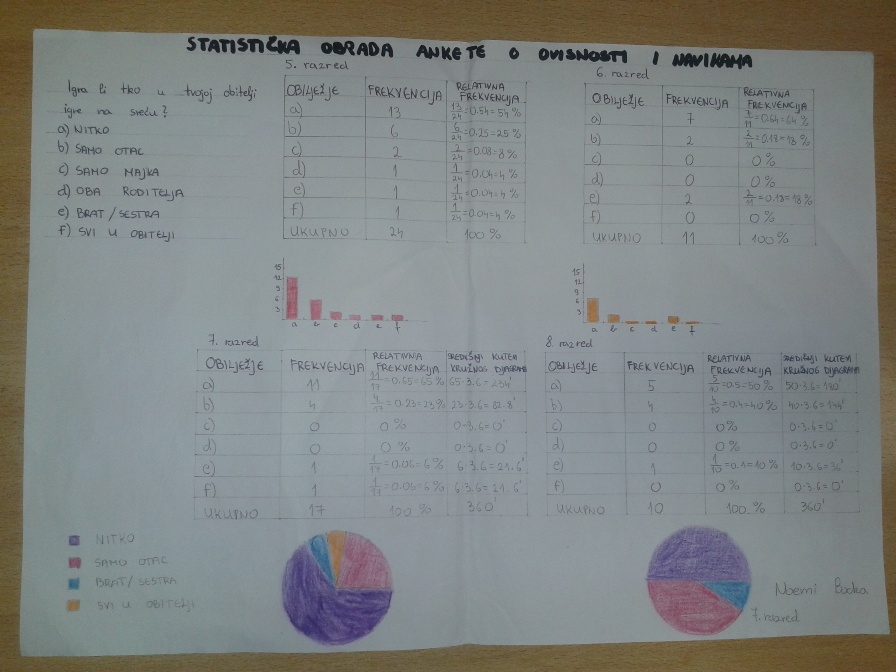 STATISTIČKA OBRADA ANKETE O OVISNOSTI I NAVIKAMA
Igra li tko u tvojoj obitelji
igre na sreću?
a) NITKO
b) SAMO OTAC
c) SAMO MAJKA
d) OBA RODITELJA
e) BRAT/SESTRA
f) SVI U OBITELJI
5. razred
OBILJEŽJE FREKVENCIJA RELATIVNA FREKVENCIJA
a) 13 13/24=0.54=54%
b) 6 6/24=0.25=25%
c) 2 2/24=0.08=8%
d) 1 1/24=0.04=4%
e) 1 1/24=0.04=4%
f) 1 1/24=0.04=4%
UKUPNO 24 100%
6. razred
OBILJEŽJE FREKVENCIJA RELATIVNA FREKVENCIJA
a) 7 7/11=0.64=64%
b) 2 2/11=0.18=18%
c) 0 0%
d) 0 0%
e) 2 2/11=0.18=18%
f) 0 0%
UKUPNO 11 100%
15
12
9
6
3
a b c d e f
15
12
9
6
3
a b c d e f
7. razred
OBILJEŽJE FREKVENCIJA RELATIVNA FREKVENCIJA SREDIŠNJI KUTEVI KRUŽNOG DIJAGRAMA
a) 11 11/17=0.65=65% 65·3.6=234°
b) 4 4/17=0.23=23% 23·3.6=82.8°
c) 0 0% 0·3.6=0°
d) 0 0% 0·3.6=0°
e) 1 1/17=0.06=6% 6·3.6=21.6°
f) 1 1/17=0.06=6% 6·3.6=21.6°
UKUPNO 17 100% 360°
8. razred
OBILJEŽJE FREKVENCIJA RELATIVNA FREKVENCIJA SREDIŠNJI KUTEVI KRUŽNOG DIJAGRAMA
a) 5 5/10=0.5=50% 50·3.6=180°
b) 4 4/10=0.4=40% 40·3.6=144°
c) 0 0% 0·3.6=0°
d) 0 0% 0·3.6=0°
e) 1 1/10=0.1=10% 10·3.6=36°
f) 0 0% 0·3.6=0°
UKUPNO 10 100% 360°
NITKO
SAMO OTAC
BRAT/SESTRA
SVI U OBITELJI
Noemi
7. razred